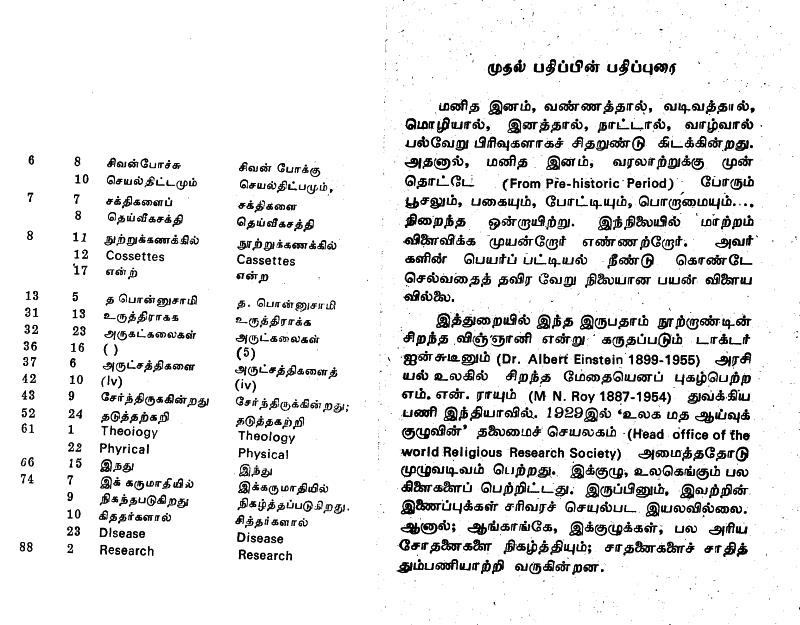 6 8 சிவன்போச்சு சிவன் போக்கு
10 செயல்திட்டமும் செயல்திட்பமும்,
7 7 சக்திகளைப் சக்திகளை
8 தெய்வீகசக்தி தெய்வீகசத்தி
8 11 நுற்றுக்கணக்கில் நூற்றுக்கணக்கில்
12 Cossettes Cassettes
17 என்ற் என்ற
13 5 த பொன்னுசாமி த. பொன்னுசாமி
31 13 உருத்திராகக உருத்திராக்க
32 23 அருகட்கலைகள் அருட்கலைகள்
36 16 ( ) (5)
37 6 அருட்சத்திகளை அருட்சத்திகளைத்
42 10 (lv) (iv)
43 9 சேர்ந்திருககின்றது சேர்ந்திருக்கின்றது;
52 24 தடுத்தற்கறி தடுத்தகற்றி
61 1 Theoiogy Theology
22 Phyrical Physical
66 15 இநது இந்து
74 7 இக் கருமாதியில் இக்கருமாதியில்
9 நிகந்தபடுகிறது நிகழ்த்தப்படுகிறது.
10 கிததர்களால் சித்தர்களால்
23 DIsease Disease
88 2 Research Research
முதல் பதிப்பின் பதிப்புரை
மனித இனம், வண்ணத்தால், வடிவத்தால்,
மொழியால், இனத்தால், நாட்டால், வாழ்வால்
பல்வேறு பிரிவுகளாகச் சிதறுண்டு கிடக்கின்றது.
அதனால், மனித இனம், வரலாற்றுக்கு முன்
தொட்டே (From Pre-historic Period) போரும்
பூசலும், பகையும், போட்டியும், பொறாமையும்....
நிறைந்த ஒன்றாயிற்று. இந்நிலையில் மாற்றம்
விளைவிக்க முயன்றோர் எண்ணற்றோர். அவர்
களின் பெயர்ப் பட்டியல் நீண்டு கொண்டே
செல்வதைத் தவிர வேறு நிலையான பயன் விளைய
வில்லை.
இத்துறையில் இந்த இருபதாம் நூற்றாண்டின்
சிறந்த விஞ்ஞானி என்று கருதப்படும் டாக்டர்
ஐன்சுடீனும் (Dr. Albert Einstein 1899-1955) அரசி
யல் உலகில் சிறந்த மேதையெனப் புகழ்பெற்ற
எம். என். ராயும் (M N. Roy 1887-1954) துவக்கிய
பணி இந்தியாவில். 1929இல் ‘உலக மத ஆய்வுக்
குழுவின்’ தலைமைச் செயலகம் (Head office of the
world Religious Research Society) அமைத்ததோடு
முழுவடிவம் பெற்றது. இக்குழு, உலகெங்கும் பல
கிளைகளைப் பெற்றிட்டது. இருப்பினும், இவற்றின்
இணைப்புக்கள் சரிவரச் செயல்பட இயலவில்லை.
ஆனால்; ஆங்காங்கே, இக்குழுக்கள், பல அரிய
சோதனைகளை நிகழ்த்தியும்; சாதனைகளைச் சாதித்
தும்பணியாற்றி வருகின்றன.